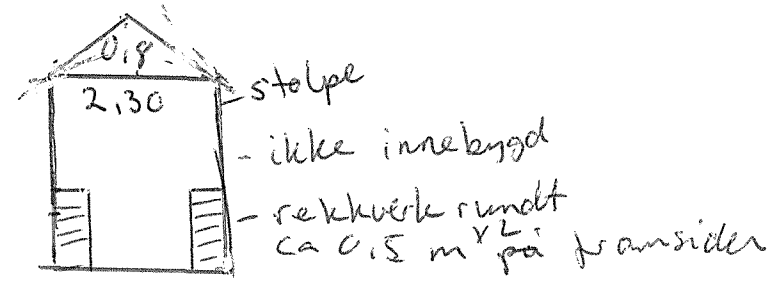 0,8
2,30
- stolpe
- ikke innebygd
- rekkverk rundt
ca 0,5 m x2 på framsiden